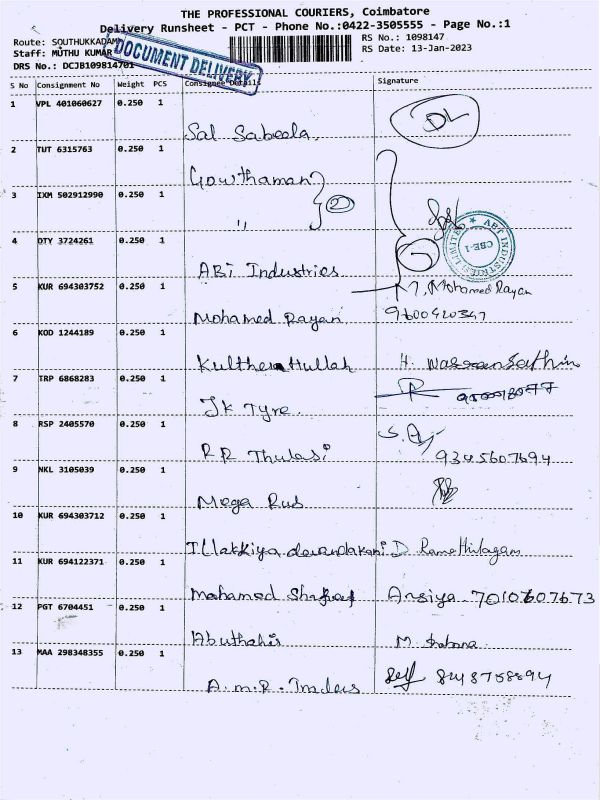 THE PROFESSIONAL COURIERS, Coimbatore
Delivery Runsheet - PCT - Phone No.:0422-3505555 - Page No.:1
Route: SOUTHUKKADAM
RS No.: 1098147
Staff: MUTHU KUMAR
RS Date: 13-Jan-2023
DRS No.: DCJB109814701
DOCUMENT DELIVERY
S No Consignment No Weight PCS Consignee Details Signature
1 VPL 401060627 0.250 1
Sal Sabeela DL
2 TUT 6315763 0.250 1
Gowthaman
3 IXM 502912990 0.250 1
" 2
4 OTY 3724261 0.250 1
ABI Industries
ABT INDUSTRIES LIMITED
CBE-1
5 KUR 694303752 0.250 1
M. Mohamed Rayan
Mohamed Rayan 9600420347
6 KOD 1244189 0.250 1
7 TRP 6868283 0.250 1
Jk Tyre
8 RSP 2405570 0.250 1
RR Thulasi 9345607694
9 NKL 3105039 0.250 1
Mega Rus
10 KUR 694303712 0.250 1
D
11 KUR 694122371 0.250 1
Mohamed Ansiya 7010607673
12 PGT 6704451 0.250 1
Abuthahir M.
13 MAA 298348355 0.250 1
A.M.R. Traders